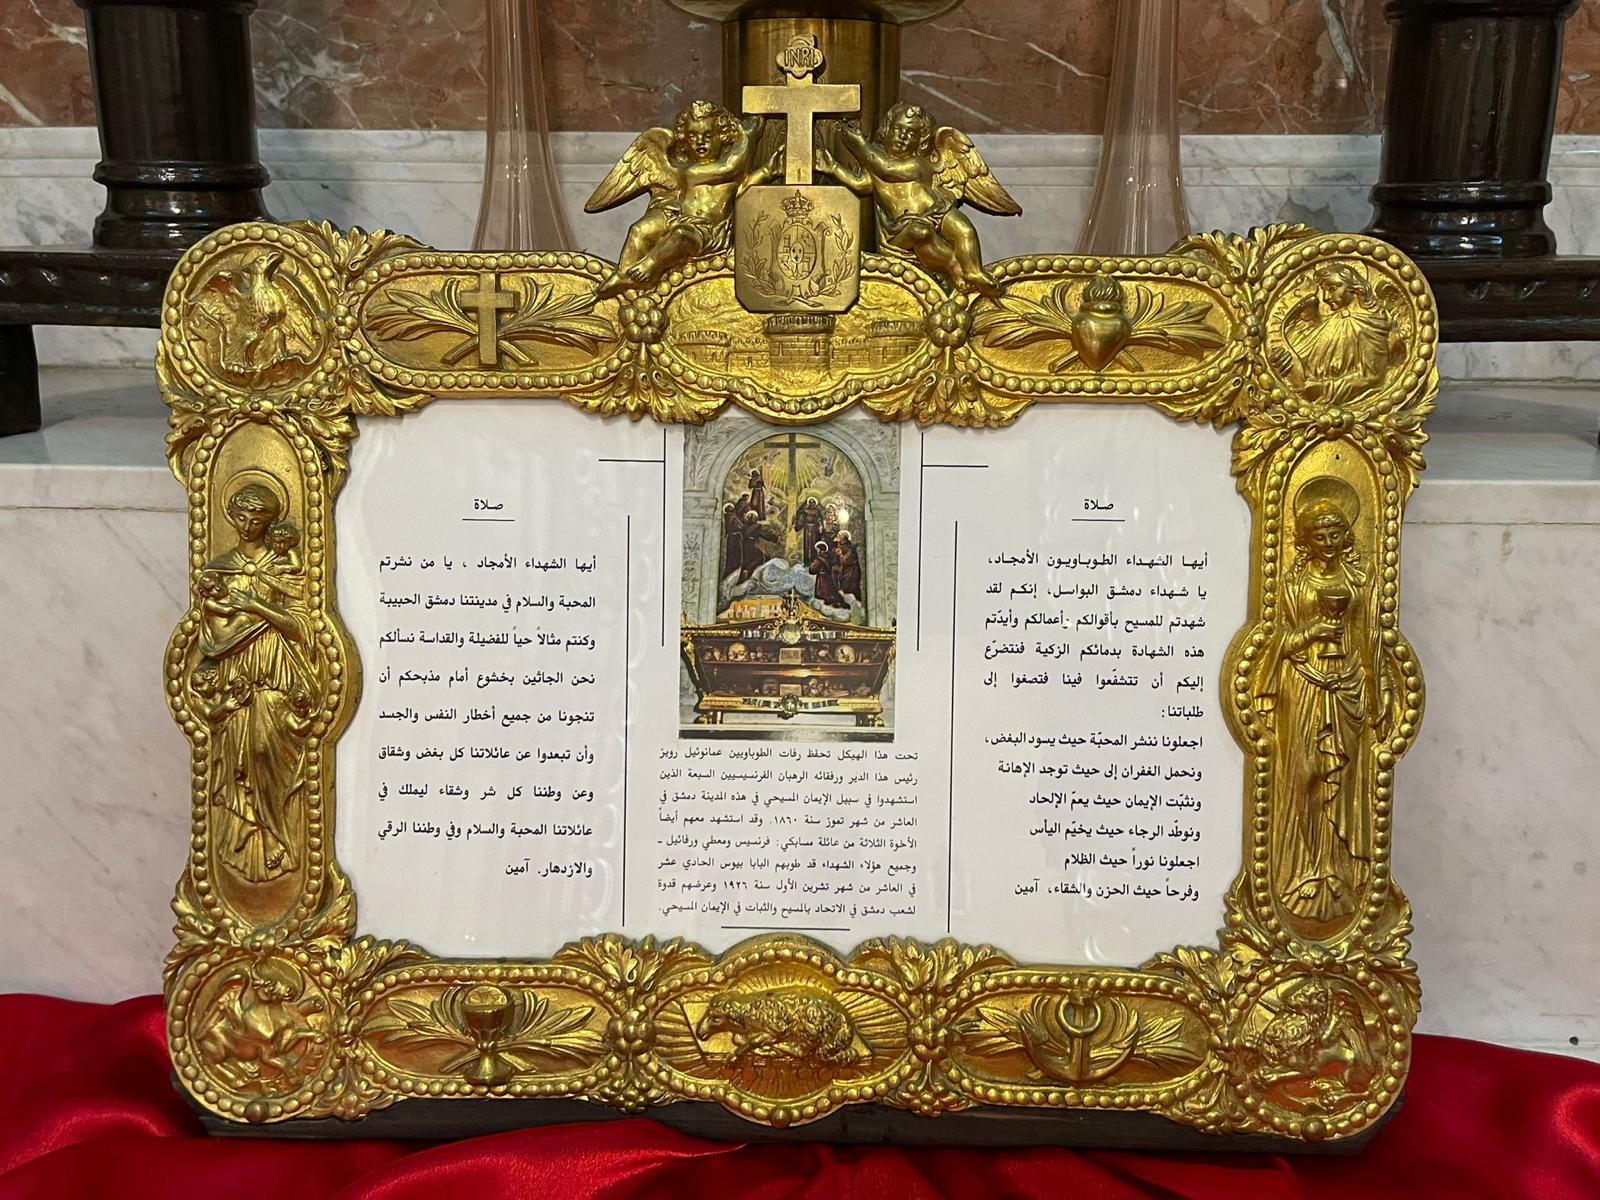 INRI
صلاة
أيها الشهداء الطوباويون الأمجاد،
يا شهداء دمشق البواسل، إنكم لقد
شهدتم للمسيح بأقوالكم وأعمالكم وأيّدتم
هذه الشهادة بدمائكم الزكية فنتضرّع
إليكم أن تتشفّعوا فينا فتصغوا إلى
طلباتنا:
اجعلونا ننشر المحبّة حيث يسود البغض،
ونحمل الغفران إلى حيث توجد الإهانة
ونثبّت الإيمان حيث يعمّ الإلحاد
ونوطّد الرجاء حيث يخيّم اليأس
اجعلونا نوراً حيث الظلام
وفرحاً حيث الحزن والشقاء، آمين
تحت هذا الهيكل تحفظ رفات الطوباويين عمانوئيل رويز
رئيس هذا الدير ورفقائه الرهبان الفرنسيسيين السبعة الذين
استشهدوا في سبيل الإيمان المسيحي في هذه المدينة دمشق في
العاشر من شهر تموز سنة ١٨٦٠. وقد استشهد معهم أيضاً
الأخوة الثلاثة من عائلة مسابكي: فرنسيس ومعطي ورفائيل ـ
وجميع هؤلاء الشهداء قد طوبهم البابا بيوس الحادي عشر
في العاشر من شهر تشرين الأول سنة ١٩٢٦ وعرضهم قدوة
لشعب دمشق في الاتحاد بالمسيح والثبات في الإيمان المسيحي.
صلاة
أيها الشهداء الأمجاد ، يا من نشرتم
المحبة والسلام في مدينتنا دمشق الحبيبة
وكنتم مثالاً حياً للفضيلة والقداسة نسألكم
نحن الجاثين بخشوع أمام مذبحكم أن
تنجونا من جميع أخطار النفس والجسد
وأن تبعدوا عن عائلاتنا كل بغض وشقاق
وعن وطننا كل شر وشقاء ليملك في
عائلاتنا المحبة والسلام وفي وطننا الرقي
والازدهار. آمين